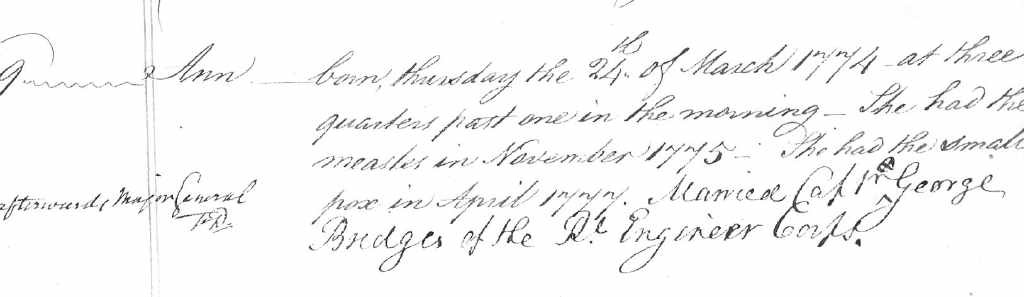 9 Ann born, thursday the 24th of March 1774 at three
quarters past one in the morning - She had the
measles in November 1775 - She had the small
pox in April 1777. Married Captn George
Bridges of the Rl Engineer Corps.
afterwards Major General